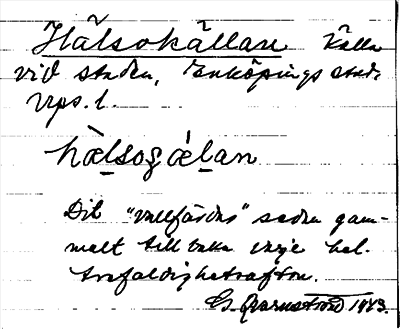 Hälsokällan Källa
vid staden, Enköpings stad.
Upps. l.
hæ̀lsoǥǽlan
Dit "vallfärdas" sedan gam-
malt till varje hel.
trefaldighetsafton.
1943.